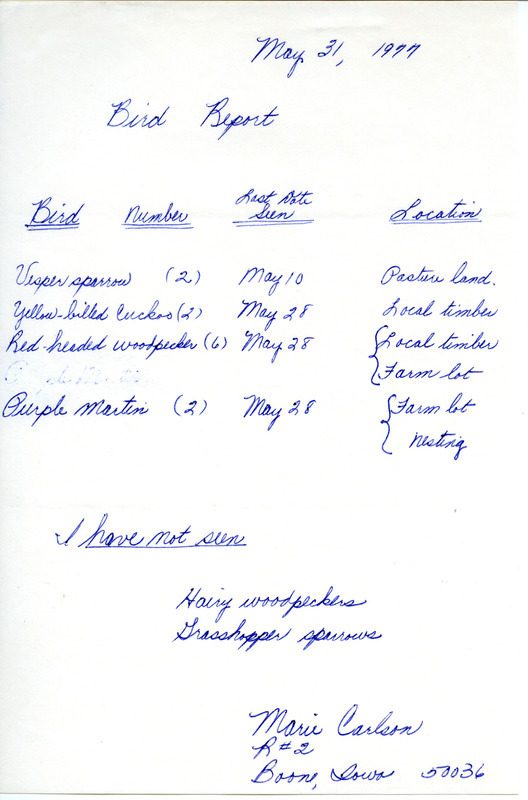 May 31, 1977
Bird Report
Bird Number Last Date Seen Location
Vesper sparrow (2) May 10 Pasture land.
Yellow-billed Cuckoo (2) May 28 Local timber
Red-headed woodpecker (6) May 28 Local timber
Farm lot
Purple Martin (2) May 28 Farm lot
nesting
I have not seen
Hairy woodpeckers
Grasshopper sparrows
Marie Carlson
R#2
Boone, Iowa 50036